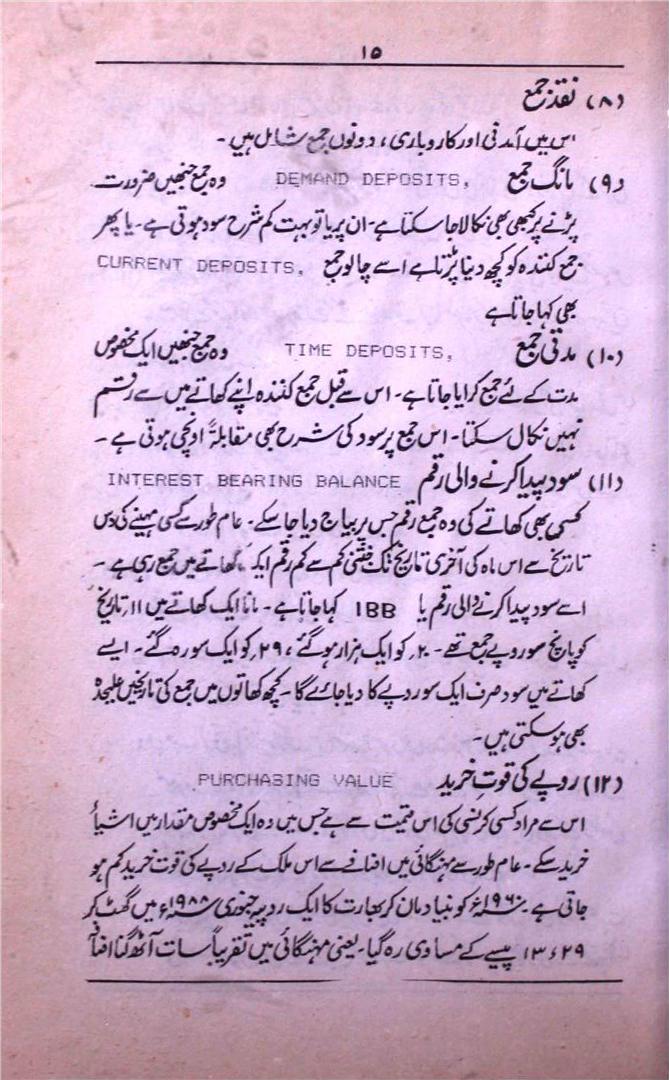 ۱۵
(۸) نقد جمع
اس میں آمدنی اور کاروباری، دونوں جمع شامل ہیں۔
(۹) مانگ جمع DEMAND DEPOSITS, وہ جمع جنھیں ضرورت
پڑنے پر کبھی بھی نکالا جا سکتا ہے۔ ان پر یا تو بہت کم شرح سود ہوتی ہے۔ یا پھر
جمع کنندہ کو کچھ دینا پڑتا ہے اسے چالو جمع CURRENT DEPOSITS,
بھی کہا جاتا ہے
(۱۰) مدتی جمع TIME DEPOSITS, وہ جمع جنھیں ایک مخصوص
مدت کے لئے جمع کرایا جاتا ہے۔ اس سے قبل جمع کنندہ اپنے کھاتے میں سے رقم
نہیں نکال سکتا۔ اس جمع پر سود کی شرح بھی مقابلۃً اونچی ہوتی ہے۔
(۱۱) سود پیدا کرنے والی رقم INTEREST BEARING BALANCE
کسی بھی کھاتے کی وہ جمع رقم جس پر بیاج دیا جا سکے۔ عام طور سے کسی مہینے کی دس
تاریخ سے اس ماہ کی آخری تاریخ تک جتنی کم سے کم رقم ایک کھاتے میں جمع رہی ہے۔
اسے سود پیدا کرنے والی رقم یا IBB کہا جاتا ہے۔ مانا ایک کھاتے میں ۱۱ر تاریخ
کو پانچ سو روپے جمع تھے۔ ۲۰ر کو ایک ہزار ہو گئے، ۲۹ر کو ایک سو رہ گے۔ ایسے
کھاتے میں سود صرف ایک سو روپے کا دیا جائے گا۔ کچھ کھاتوں میں جمع کی تاریخیں علیحدہ
بھی ہو سکتی ہیں۔
(۱۲) روپے کی قوتِ خرید PURCHASING VALUE
اس سے مراد کسی کرنسی کی اس قیمت سے ہے جس میں وہ ایک مخصوص مقدار میں اشیأ
خرید سکے۔ عام طور سے مہنگائی میں اضافے سے اس ملک کے روپے کی قوت خرید کم ہو
جاتی ہے۔ ۱۹۶۰ء کو بنیاد مان کر بھارت کا ایک روپیہ جنوری ۱۹۸۸ء میں گھٹ کر
۱۳ء۲۹ پیسے کے مساوی رہ گیا۔ یعنی مہنگائی میں تقریباً سات آٹھ گنا اضافہ